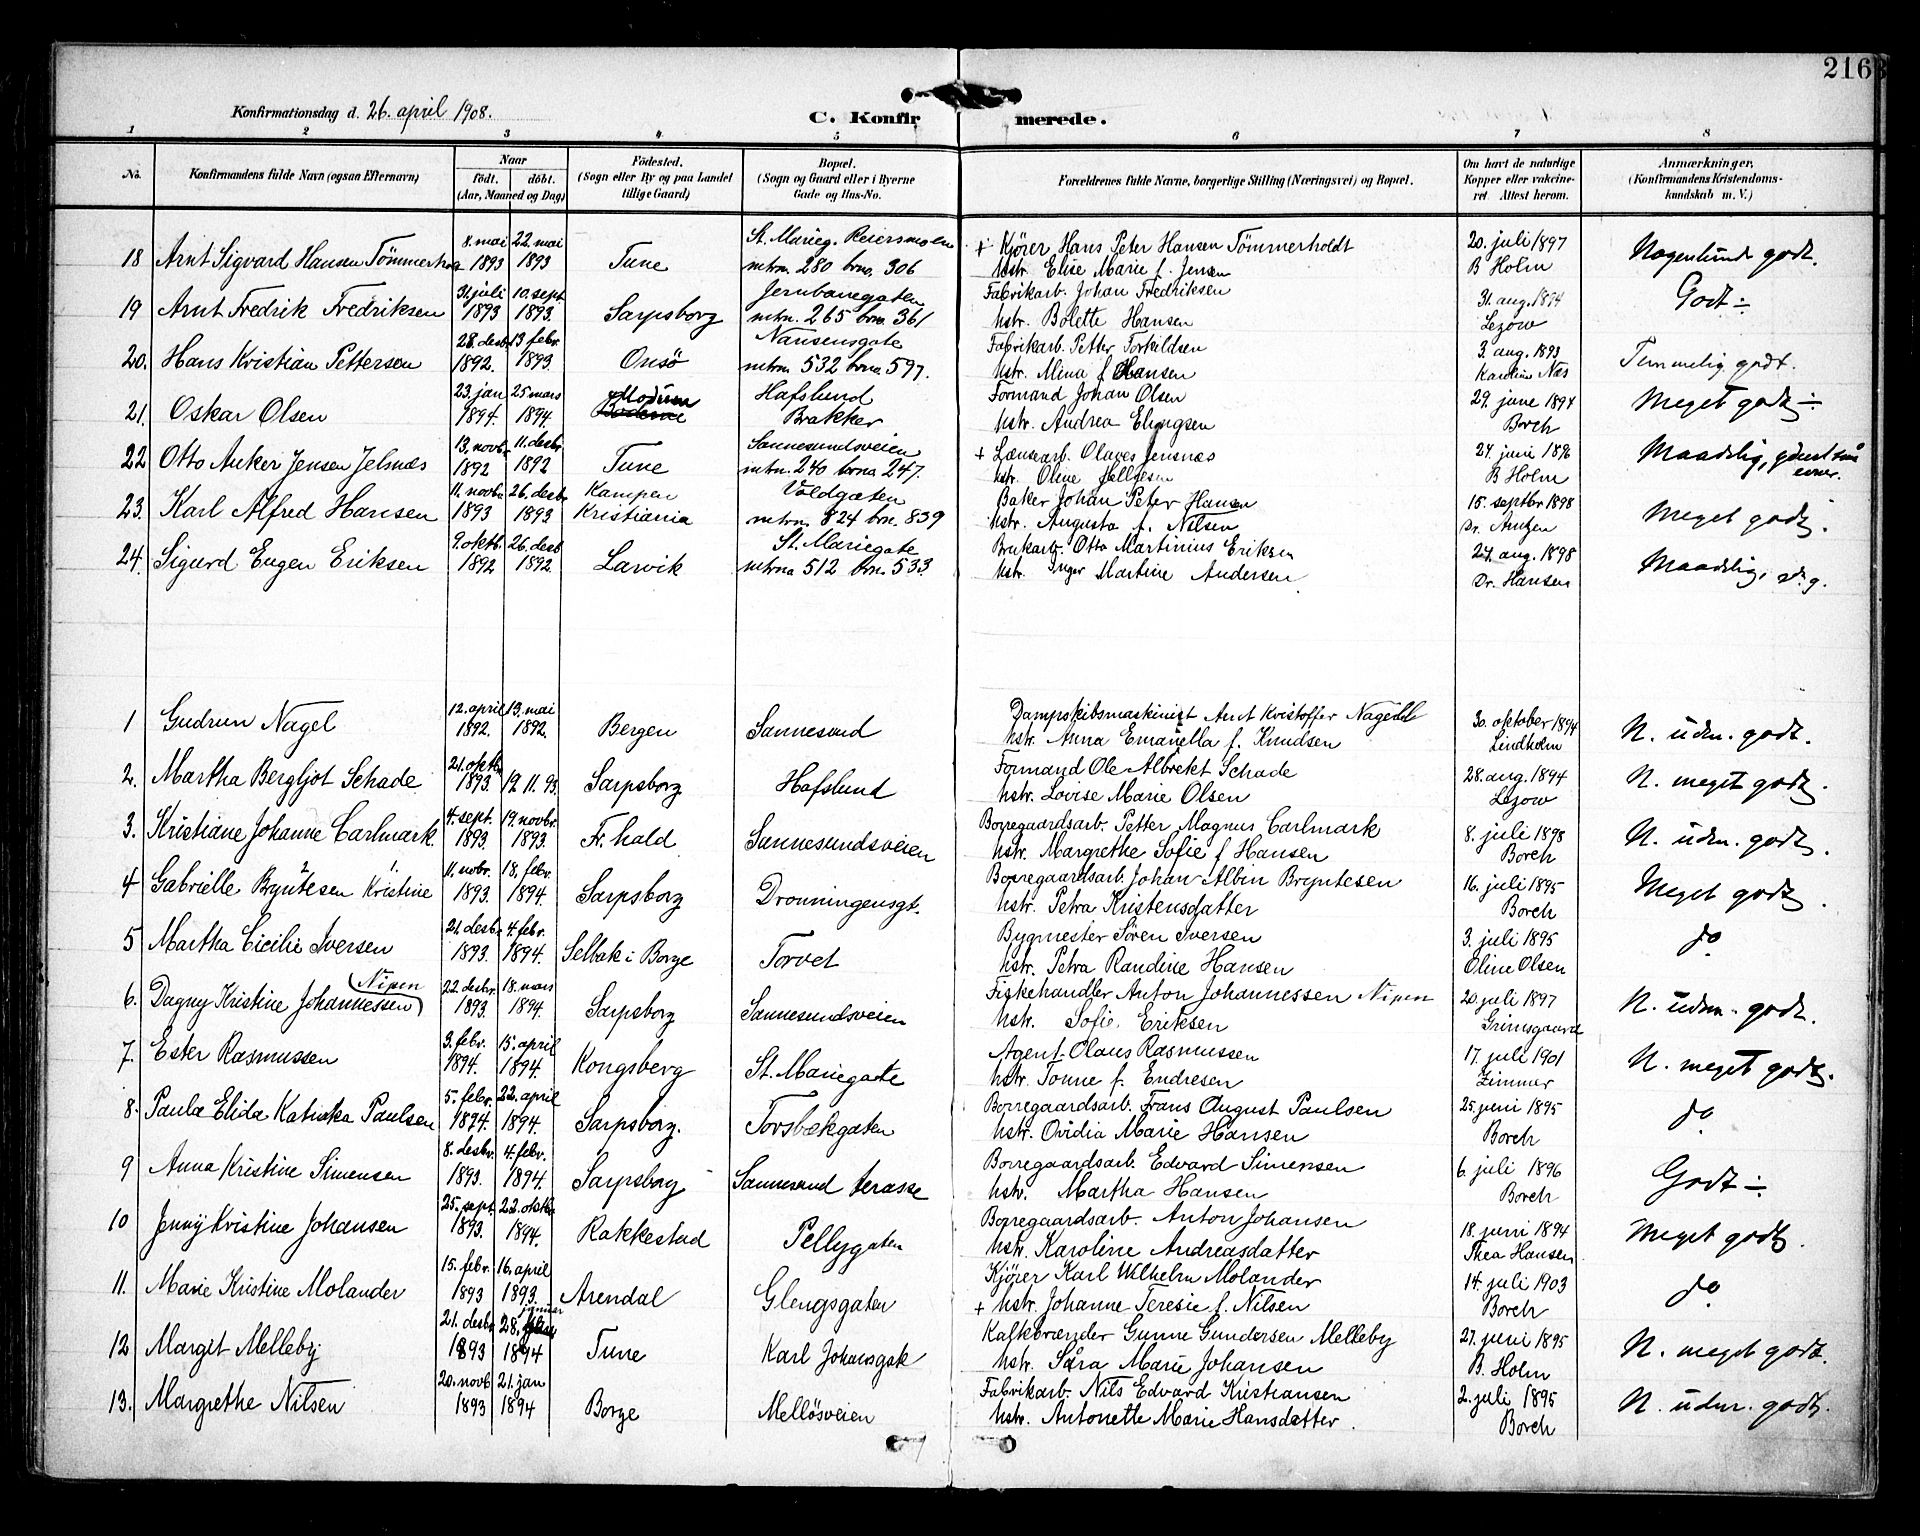 216
Konfirmationsdag d. 26. april 1908.
C. Konfirmerede.
1 2 3 4 5 6 7 8
No.
Konfirmandens fulde Navn (ogsaa Efternavn)
Naar
födt. döbt.
(Aar, Maaned og Dag)
Födested.
(Sogn eller By og paa Landet
tillige Gaard)
Bopæl.
(Sogn og Gaard eller i Byerne
Gade og Hus-No.
Forældrenes fulde Navne, borgerlige Stilling (Næringsvei) og Bopæl.
Om havt de naturlige
Kopper eller vakcine-
ret Attest herom.
Anmærkninger,
(Konfirmandens Kristendoms-
kundskab m. V.)
8. mai 22. mai St. Marieg. Reiersmoen + Kjörer Hans Peter Hansen Tömmerholdt 20. juli 1897
18 Arnt Sigvard Hansen 1893 1893 Tune mtrn. 280 brno. 306 hstr. Elise Marie f. Jensen B Holm Nogenlunde godt.
31. juli 10. sept. Jernbanegaten Fabrikarb. Johan Fredriksen 31. aug. 1894
19 Arnt Fredrik Fredriksen 1893 1893. Sarpsborg mtrn. 265 brno 361 hstr. Bolette Hansen Lezow Godt ÷
28. desbr. 13 febr. Nansensgate Fabrikarb. Petter Torkildsen 3. aug. 1893
20. Hans Kristian Pettersen 1892. 1893. Onsö mtrn. 532 brno 597. hstr. Mina f. Hansen Karoline Næs Temmelig godt.
23. jan 25. mars Modum Hafslund Formand Johan Olsen 29. june 1894
21. Oskar Olsen 1894. 1894. Brakker hstr. Andrea Borch Meget godt ÷
13. novb. 11. desbr. Sannesundsveien + Lænsearb. Olaves 24. juni 1896
22 Otto Anker Jensen Jelsnæs 1892 1892 Tune mtrn. 240 brno 247. hstr. Oline Hellgesen B Holm Maadelig, evner.
11. novbr 26. desbr Kampen Voldgaten Baker Johan Peter Hansen 15. septbr 1898
23. Karl Alfred Hansen 1893 1893 Kristiania mtrn. 824 brn. 839 hstr. Augusta f. Nilsen Dr. Meget godt.
9. oktb. 26. desb St. Mariegate Brukarb. Otto Martinius Eriksen 24. aug. 1898
24. Sigurd Eugen Eriksen 1892 1892. Larvik mtrno 512 brn. 533 hstr. Inger Martine Andersen. Dr. Hansen Maadelig,
12. april 13. mai Dampskibsmaskinist Arnt Kristoffer 30. oktober 1894
1 Gudrun Nagel 1892. 1892. Bergen Sannesund hstr. Anna Emanella f. Knudsen Lindholm N. udm. godt.
21. oktb. Formand Ole Albrekt Schade 28. aug. 1894
2. Martha Bergljot Schade 1893. 19. 11. 93. Sarpsborg Hafslund hstr. Lovise Marie Olsen Lezow N. meget godt.
4. sept. 19. novbr. Borregaardsarb. Petter Magnus Carlmark 8. juli 1898
3. Kristiane Johanne Carlmark 1893. 1893. Fr. hald Sannesundsveien hstr. Margrethe Sofie f. Hansen Borch N. udm. godt.
11. nobr. 18. febr. Borregaardsarb. Johan Albin Bryntesen 16. juli 1895
4 Gabrielle Bryntesen Kristine 1893. 1894. Sarpsborg Dronningensgt. hstr. Petra Kristensdatter Borch Meget godt.
21. desbr. 4. febr. Bygmester Sören Iversen 3. juli 1895
5 Martha Cicilie Iversen 1893. 1894. Selbak i Borge Torvet hstr. Petra Randine Hansen Oline Olsen do
Nipen 22. desbr. 18. mars Fiskehandler Anton Johannessen Nipen 20 juli 1897
6. Dagny Kristine Johannessen 1893. 1894. Sarpsborg Sannesundsveien hstr. Sofie Eriksen Grimsgaard N. udm. godt.
3. febr. 15. april Agent Olaus Rasmussen 17. juli 1901
7. Ester Rasmussen 1894. 1894. Kongsberg St. Mariegate hstr. Tonne f. Endresen Zimmer N. meget godt.
5. febr. 22. april Borregaardsarb. Frans August Paulsen 25. juni 1895
8. Paula Elida Paulsen 1894. 1894. Sarpsborg. Torsbækgaten hstr. Ovidia Marie Hansen Borch do
8. desbr. 4. febr. Borregaardsarb. Edvard Simensen 6. juli 1896
9 Anna Kristine Simensen 1893. 1894. Sarpsborg Sannesund terasse hstr. Martha Hansen Borch Godt ÷
25. sept. 22. oktbr Borregaardsarb. Anton Johansen 18. juni 1894
10 Jenny Kristine Johansen 1893. 1894. Rakkestad Pellygaten hstr. Karoline Andreasdatter Thea Hansen Meget godt.
15. febr. 16. april Kjörer Karl Wilhelm Molander 14. juli 1903
11. Marie Kristine Molander 1893 1893. Arendal Glengsgaten + hstr. Johanne Teresie f. Nilsen Borch do
21. desbr 28. januar Kalkbrænder Gunne Gundersen Melleby 27. juni 1895
12 Margit Melleby 1893 1894 Tune Karl Johansgt hstr. Sara Marie Johansen B. Holm N. meget godt.
20. novb 21. jan Fabrikarb. Nils Edvard Kristiansen 2. juli 1895
13. Margrethe Nilsen 1893 1894 Borge Mellösveien hstr. Antonette Marie Hansdatter. Borch N. udm. godt.